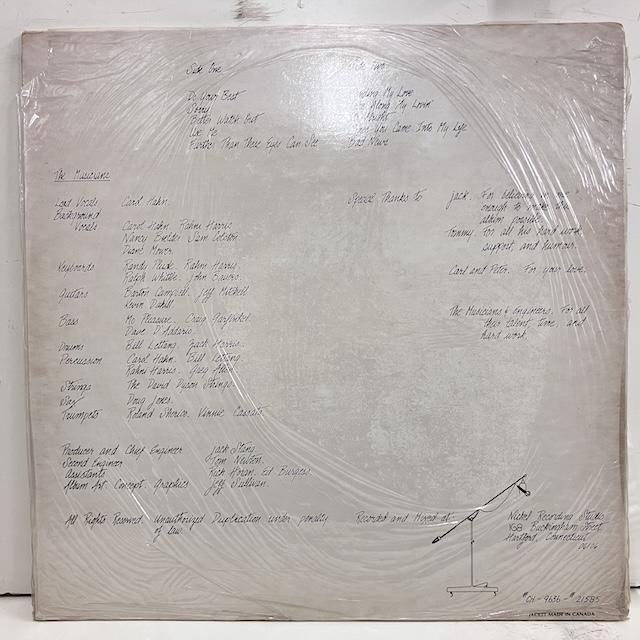 Side One
Two
Do Your Best
Sorry
Better Watch Out
Use Me
Farther Than These Eyes Can See
My Love
Along My Lovin'
You Came Into My Life
Bad News
The Musicians
Lead Vocals Carol Hahn.
Background
Vocals Carol Hahn. Rahni Harris
Nancy Sam
Diane Mower.
Keyboards Randy Rahni Harris.
Ralph Whittle. John
Guitars Barton Campbell. Jeff Mitchell
Kevin
Bass Mo Pleasure. Craig
Dave D'Addario.
Drums Bill Zack Harris.
Percussion Carol Hahn. Bill
Rahni Harris. Greg
Strings The David Dyson Strings.
Sax Doug Jones.
Trumpets Roland Vinnie
Producer and Chief Engineer Jack Stang.
Second Engineer Tom Newton.
Assistants Rick Horan. Ed Burgess.
Album Art. Concept. Graphics Jeff Sullivan.
Special Thanks to Jack. For believing in me
enough to make this
album possible.
Tommy. For all his hard work,
support, and humour.
Carl and Peter. For your love.
The Musicians & engineers. For all
their talent, time, and
hard work.
All Rights Reserved. Unauthorized Duplication under penalty
of law.
Recorded and Mixed at:
Nickel Recording Studio
168 Buckingham Street
Hartford, Connecticut
06106
#CH-9636-#21585
JACKET MADE IN CANADA